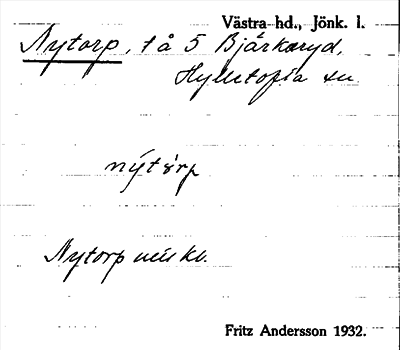 Västra hd., Jönk. l.
Nytorp, t å 5 Bjärkaryd,
Hylletofta sn
nýtòrp
Nytorp
Fritz Andersson 1932.